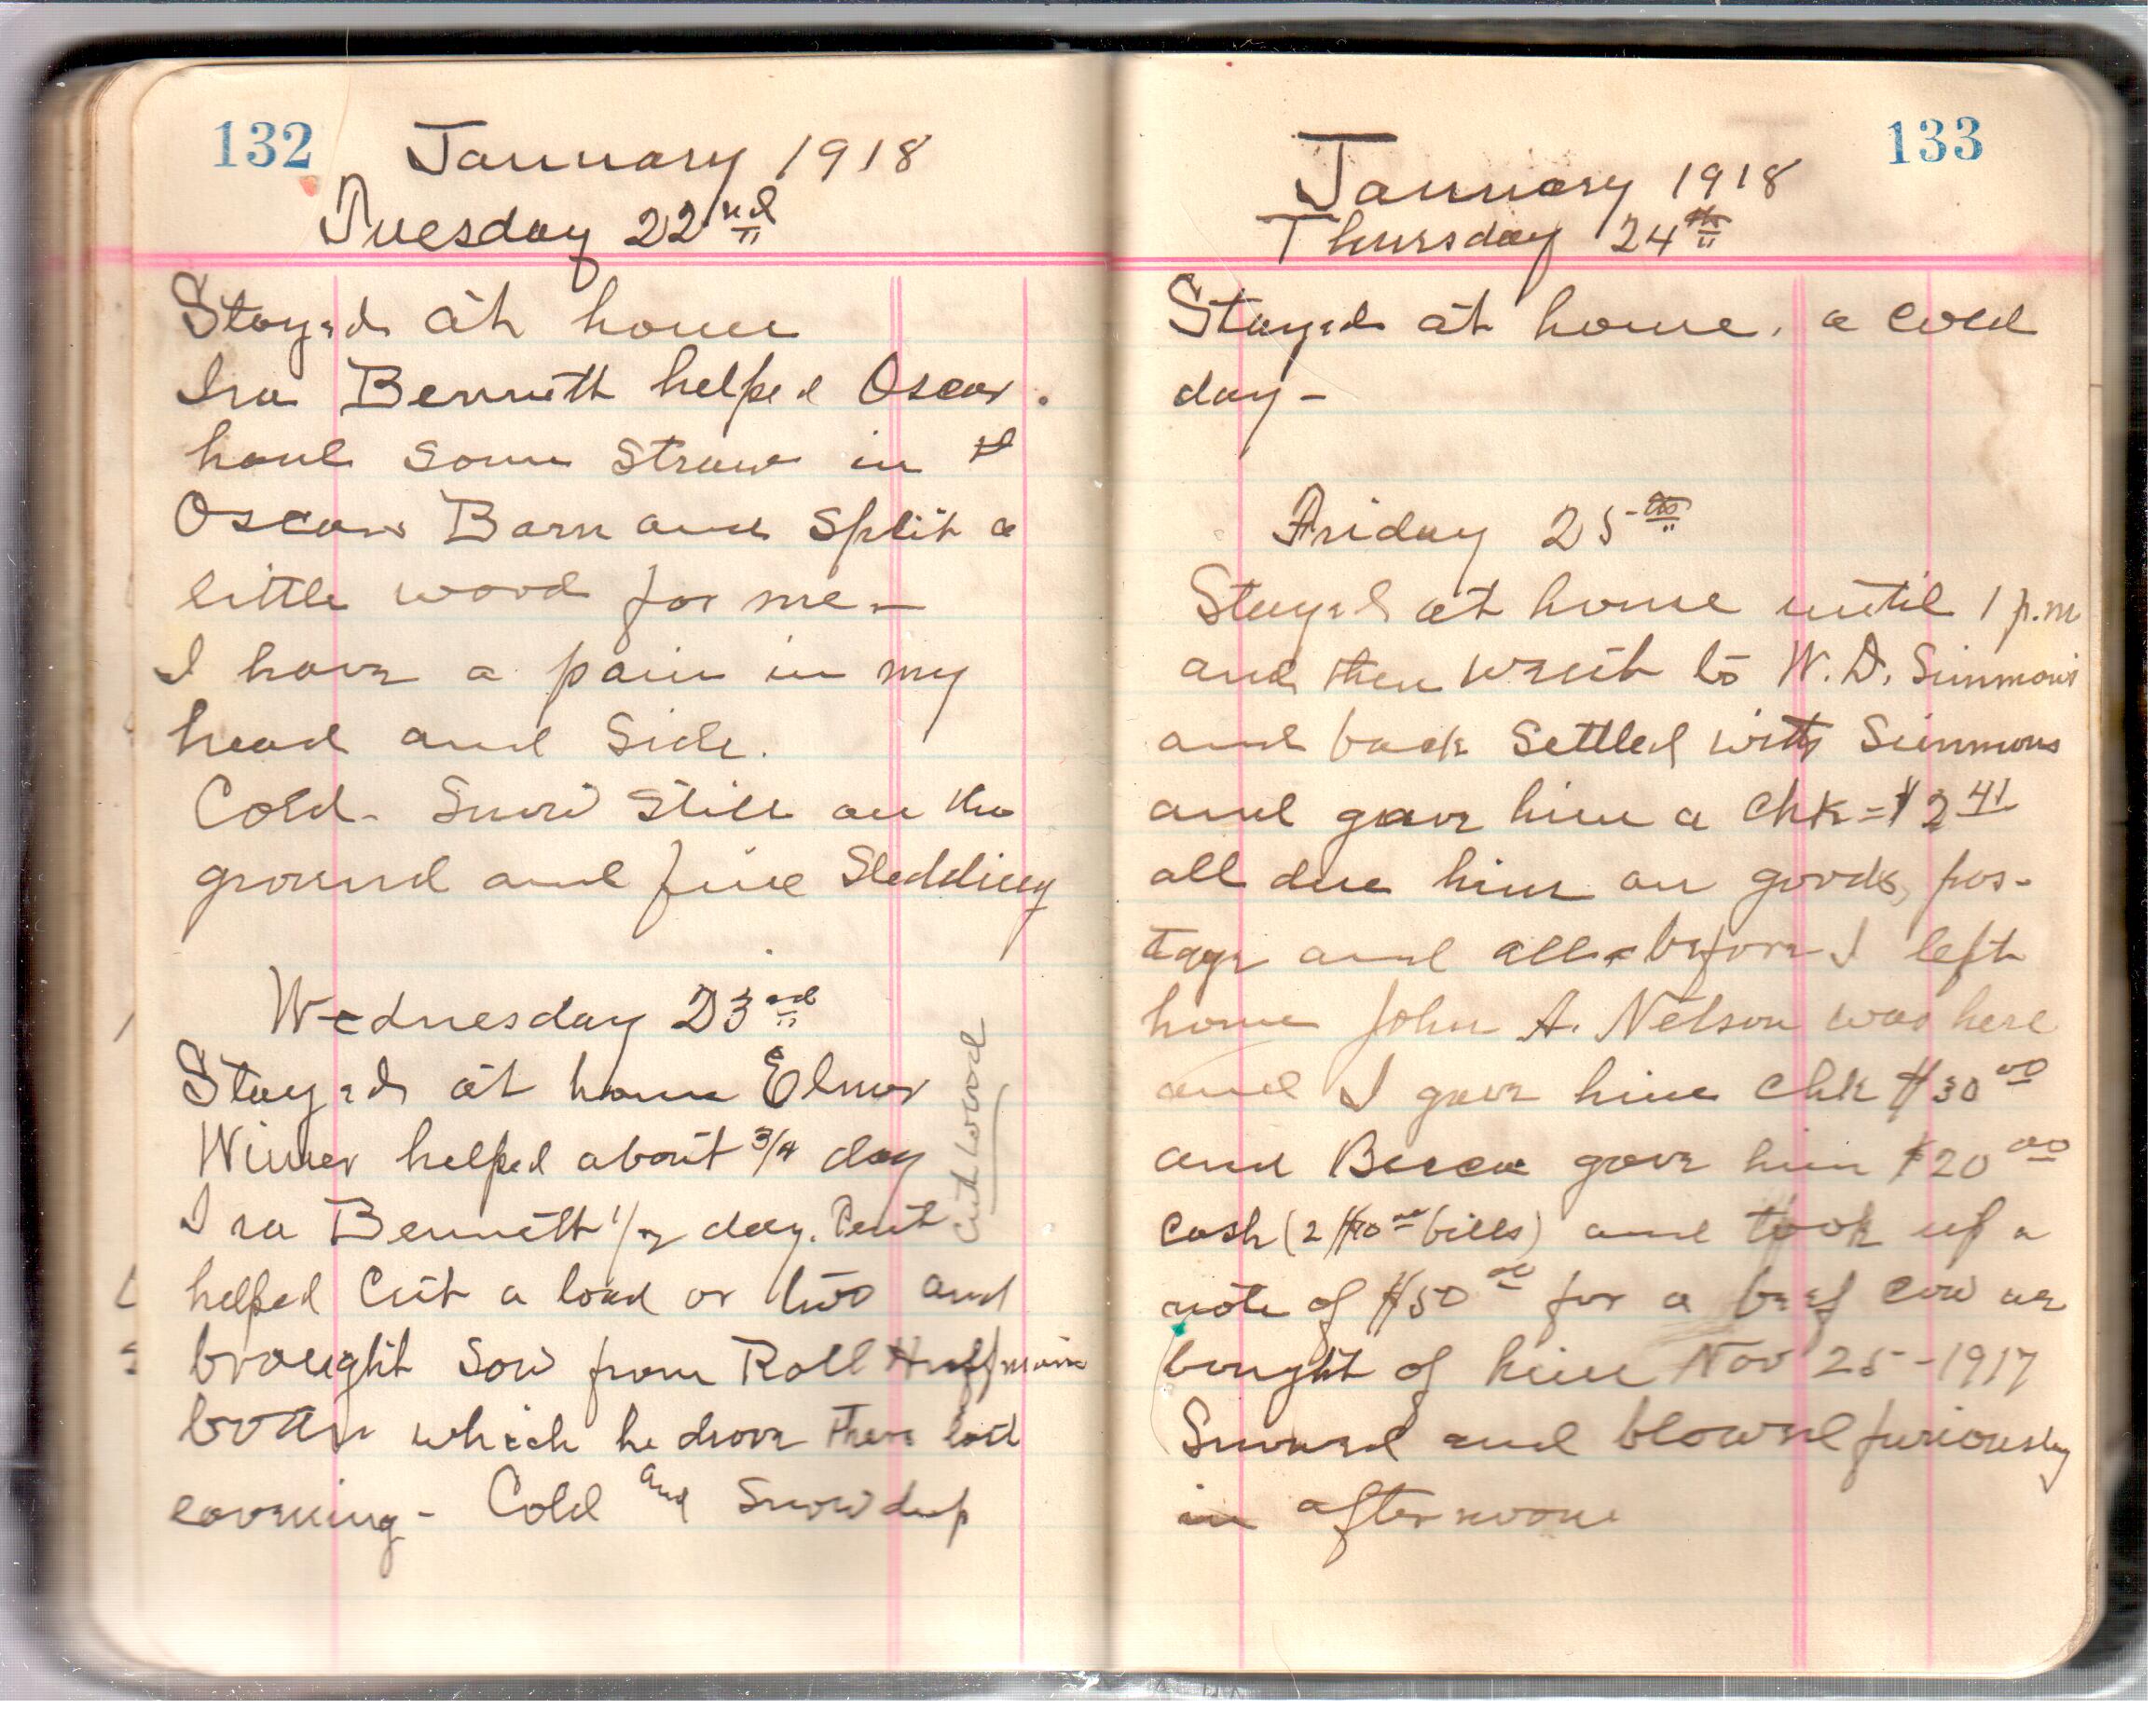 132
January 1918
Tuesday 22nd
Stayed at home
Ira Bennett helped Oscar.
haul some straw in
Oscars Barn and split a
little wood for me -
I have a pain in my
head and side.
Cold - Snow still on the
ground and fine Sledding
Wednesday 23rd
Stayed at home Elmer
Wimer helped about 3/4 day
Ira Bennett 1/2 day. Cut
cut wood
helped Cut a load or two and
brought Sow from Roll Huffmans
boar which he drove there last
evening - Cold and Snow deep
133
January 1918
Thursday 24th
Stayed at home. a cold
day -
Friday 25th
Stayed at home until 1 p.m
and then went to W. D. Simmons
and back Settled with Simmons
and gave him a Chk = $2 41
all due him on goods, pos-
tage and all - before I left
home John A. Nelson was here
and I gave him Chk $30 00
and gave him $20 00
cash (2 $10 00 bills) and took up a
note of $50 00 for a beef cow we
bought of him Nov 25 - 1917
Snowed and blowed furiously
in afternoon